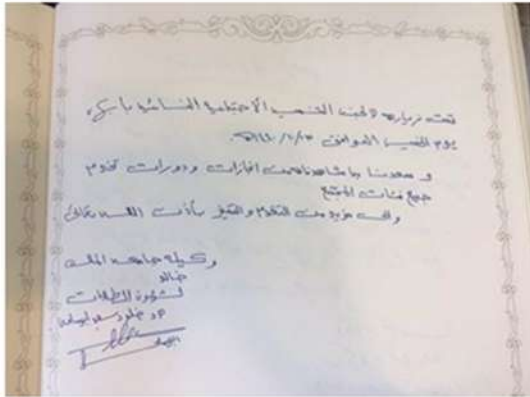 قمت بزيارة لجنة التنمية الاجتماعية النسائية بأبها
يوم الخميس الموافق
و سعدنا بما شاهدناه من انجازات ودورات تخدم
جميع فئات المجتمع
والى مزيد من التقدم والتميز بأذن الله تعالى
وكيلة جامعة الملك
خالد
لشؤون الطالبات
د. خلود سعد